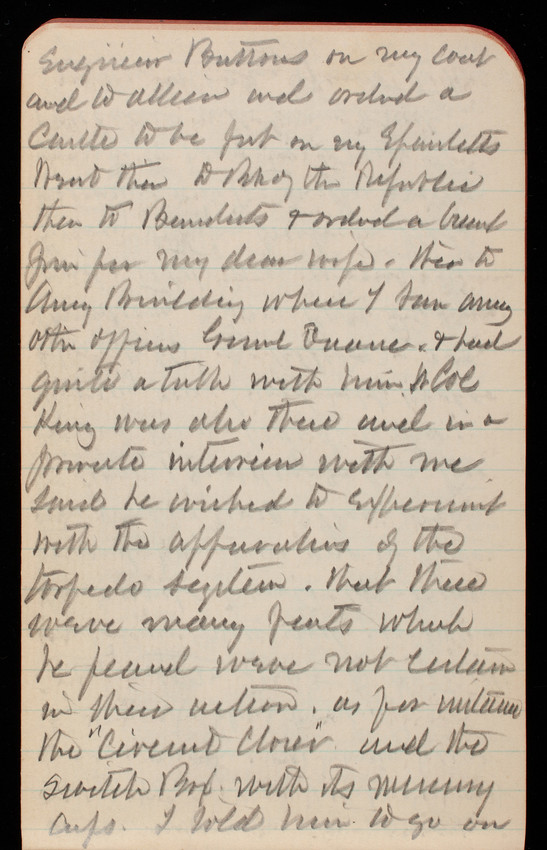 Engineer Buttons on my coat
and to and ordered a
Castle to be put on my Epauletts
Went then to Bk of the Republic
then to Benedicts & ordered a breast
pin for my dear wife. then to
Army Building where I saw among
other officers Genl Duane. & had
quite a talk with him. Lt Col
King was also there and in a
private interview with me
said he wished to experiment
with the apparatus of the
torpedo system. that there
were many parts which
he feared were not certain
in their action. as for instance
the "Circuit Closer" and the
Switch Box. with its mercury
cups. I told him to go on